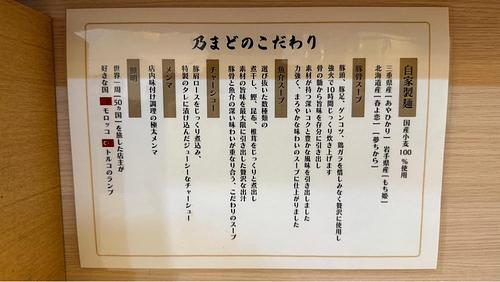 乃まどのこだわり
自家製麺 国産小麦100%使用
三重県産【あやひかり】 岩手県産【もち姫】
北海道産【春よ恋】【夢ちから】
豚骨スープ
豚頭、豚足、ゲンコツ、鶏ガラを惜しみなく贅沢に使用し
強火で10時間じっくり炊き上げます
骨の髄から旨味を存分に引き出し
素材が持つ深いコクと豊かな風味を引き出しました
力強く、まろやかな味わいのスープに仕上がりました
魚介スープ
選び抜いた数種類の
煮干し、鰹、昆布、椎茸をじっくりと煮出し
素材の旨味を最大限に引き出した贅沢な出汁
豚骨と魚介の深い味わいが重なり合う、こだわりのスープ
チャーシュー
豚肩ロースをじっくり煮込み、
特製のタレに漬け込んだジューシーなチャーシュー
メンマ
店内味付け調理の極太メンマ
照明
世界一周(50カ国)を旅した店主が
好きな国 モロッコ トルコのランプ